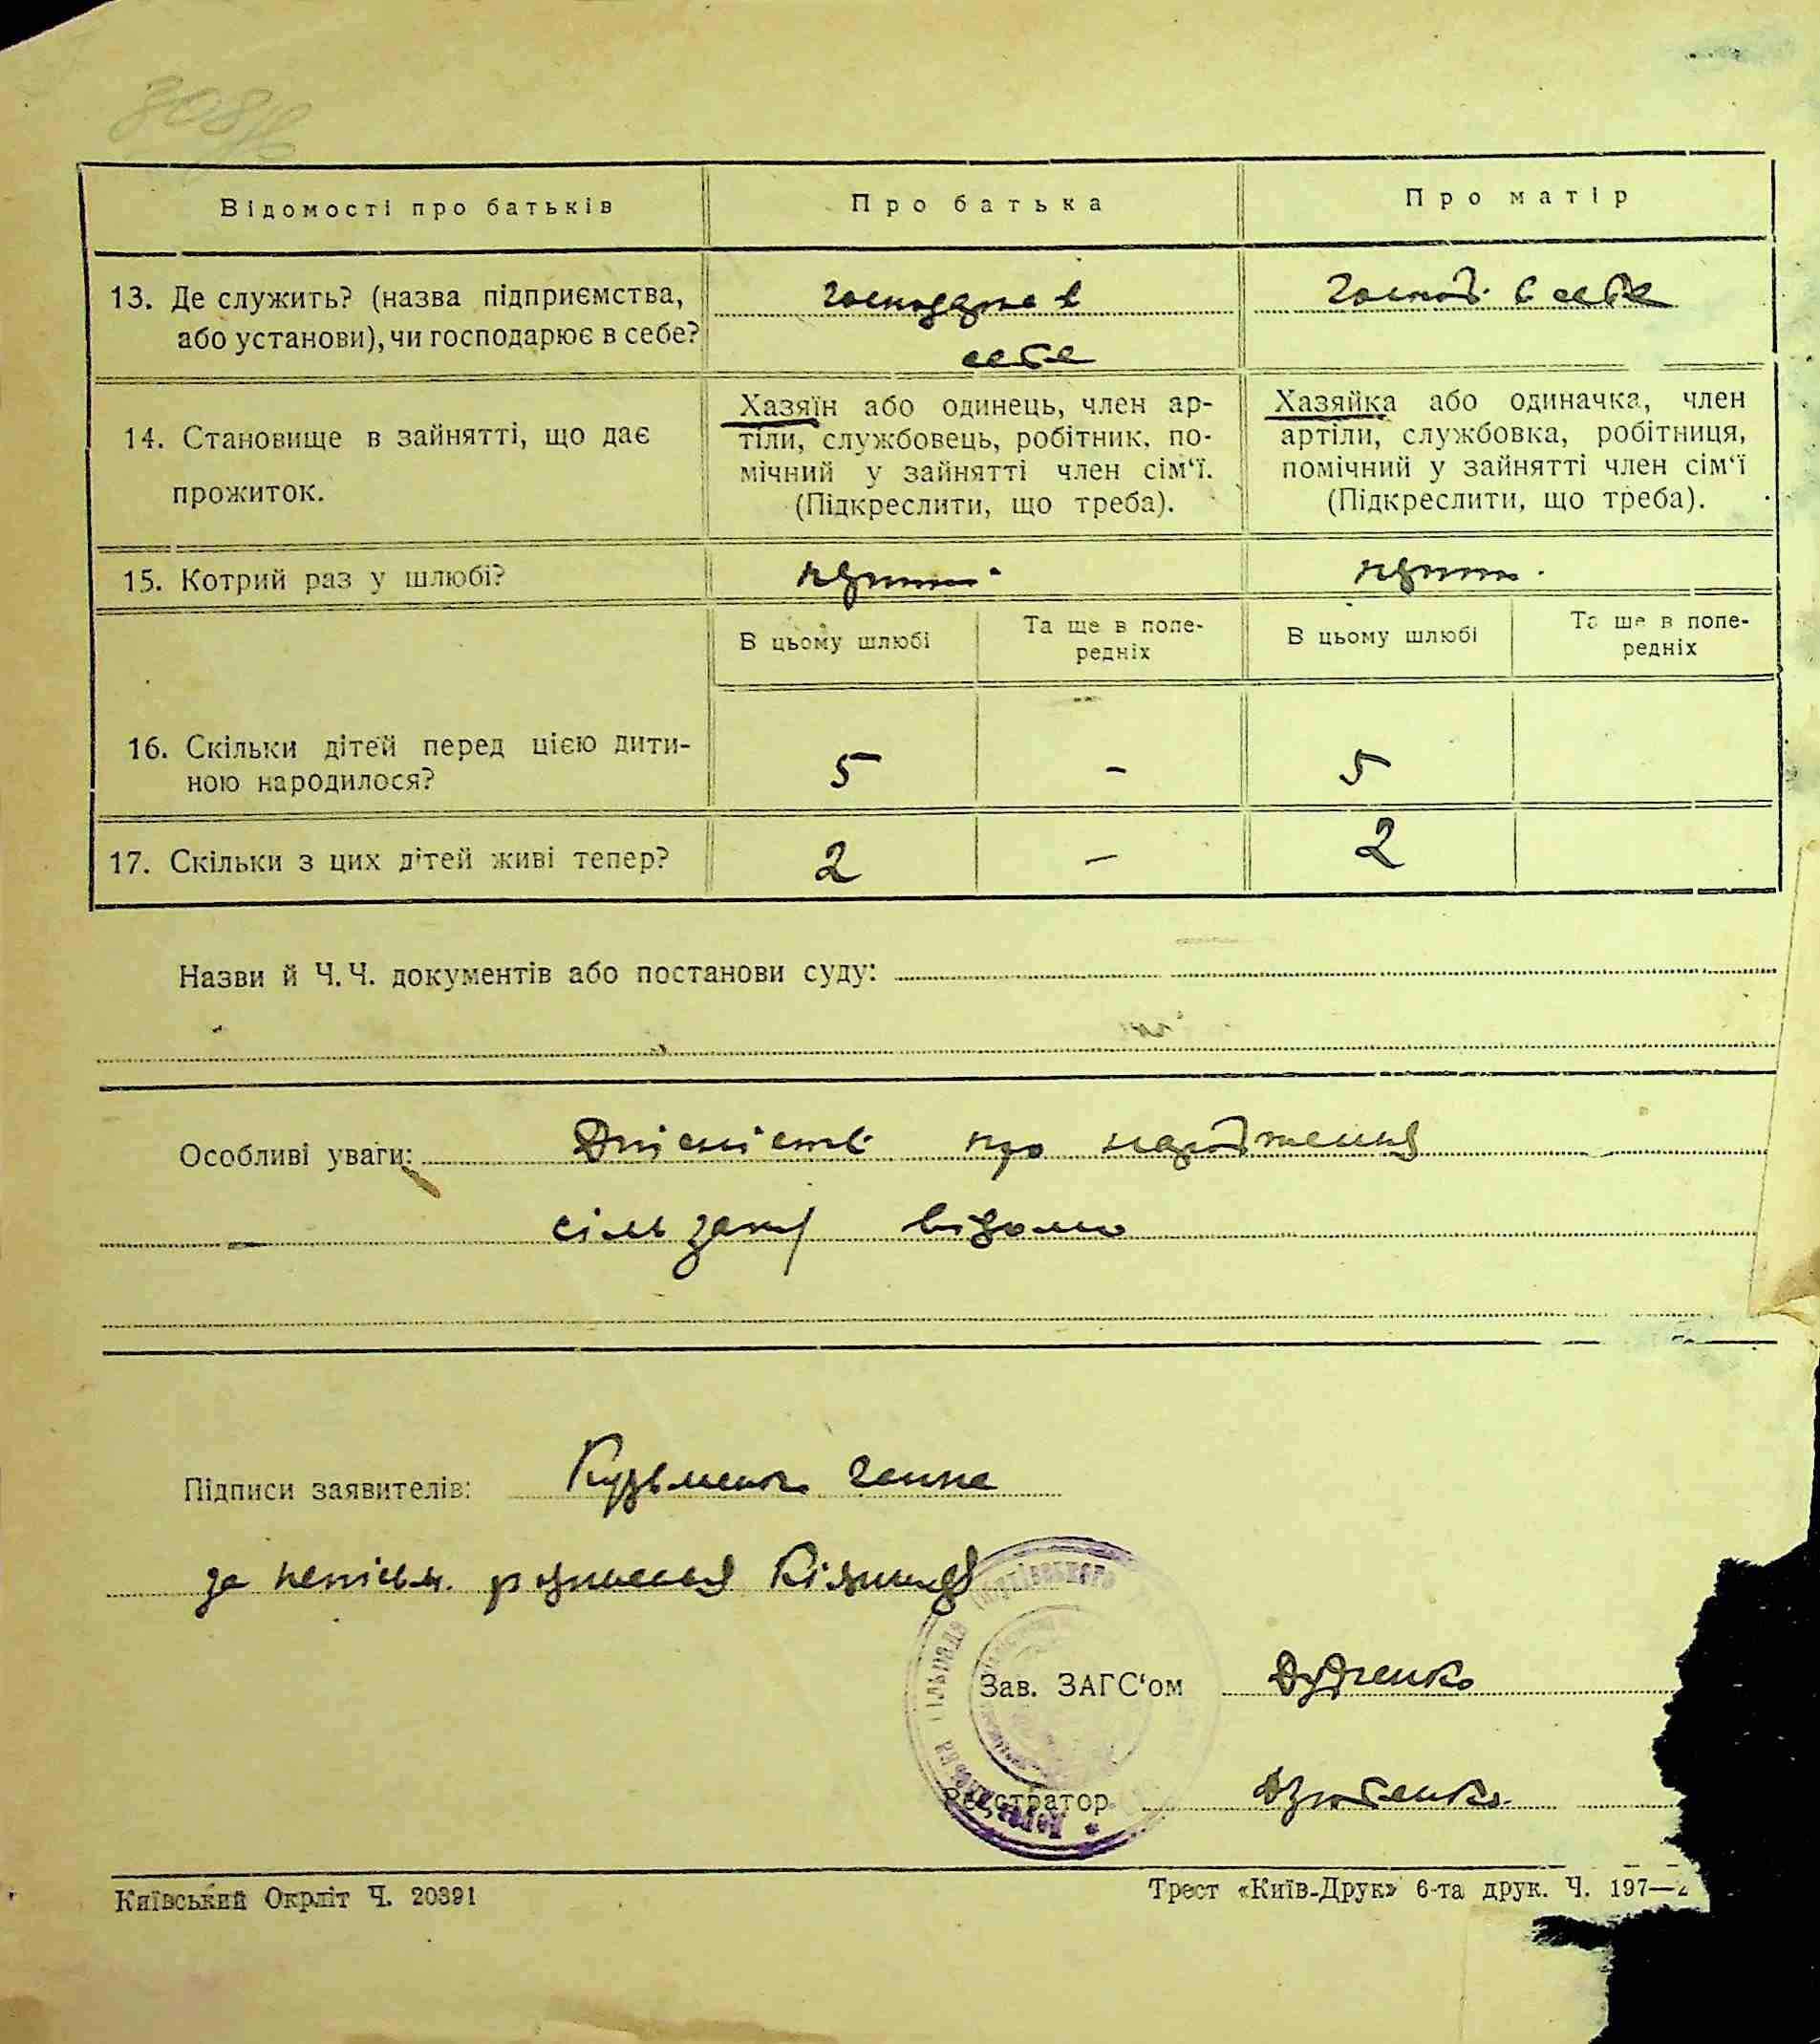 Відомості про батьків
Про батька
Про матір
13. Де служить? (назва підприємства,
або установи), чи господарює в себе?
господарює в
себе
господ. в себе
14. Становище в зайнятті, що дає
прожиток.
Хазяїн або одинець, член ар-
тіли, службовець, робітник, по-
мічний у зайнятті член сім‘ї.
(Підкреслити, що треба).
Хазяйка або одиначка, член
артіли, службовка, робітниця,
помічний у зайнятті член сім‘ї
(Підкреслити, що треба).
15. Котрий раз у шлюбі?
В цьому шлюбі
Та ще в попе-
редніх
В цьому шлюбі
Та ще в попе-
редніх
16. Скільки дітей перед цією дити-
ною народилося?
5 - 5
17. Скільки з цих дітей живі тепер?
2 - 2
Назви й Ч.Ч. документів або постанови суду:
Особливі уваги: Дійсність про народження
сільраді відомо
Підписи заявителів: Кузьменко Ганна
за неписьм. розписався
Зав. ЗАГС‘ом Дудченко
Реєстратор
Київський Окрліт Ч. 20391
Трест «Київ-Друк» 6-та друк. Ч. 197—2